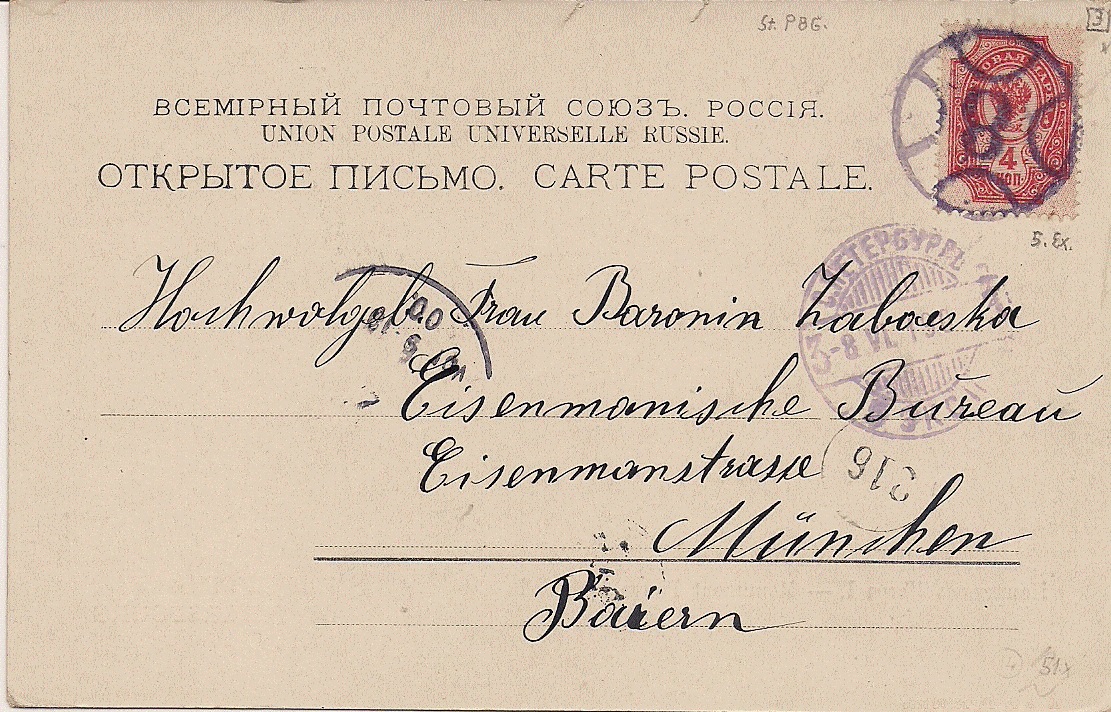 St. PBG.
3
ВСЕМІРНЫЙ ПОЧТОВЫЙ СОЮЗЪ. РОССІЯ.
UNION POSTALE UNIVERSELLE RUSSIE.
ОТКРЫТОЕ ПИСЬМО. CARTE POSTALE.
8
4
КОП.
5. Ex.
С.ПЕТЕРБУРГЪ
3-8 VI.
Hochwolgeb. Frau Baronin Zaboeska
Eisenmanische Bureau
Eisenmanstrasse
316
München
Baiern
4
51x